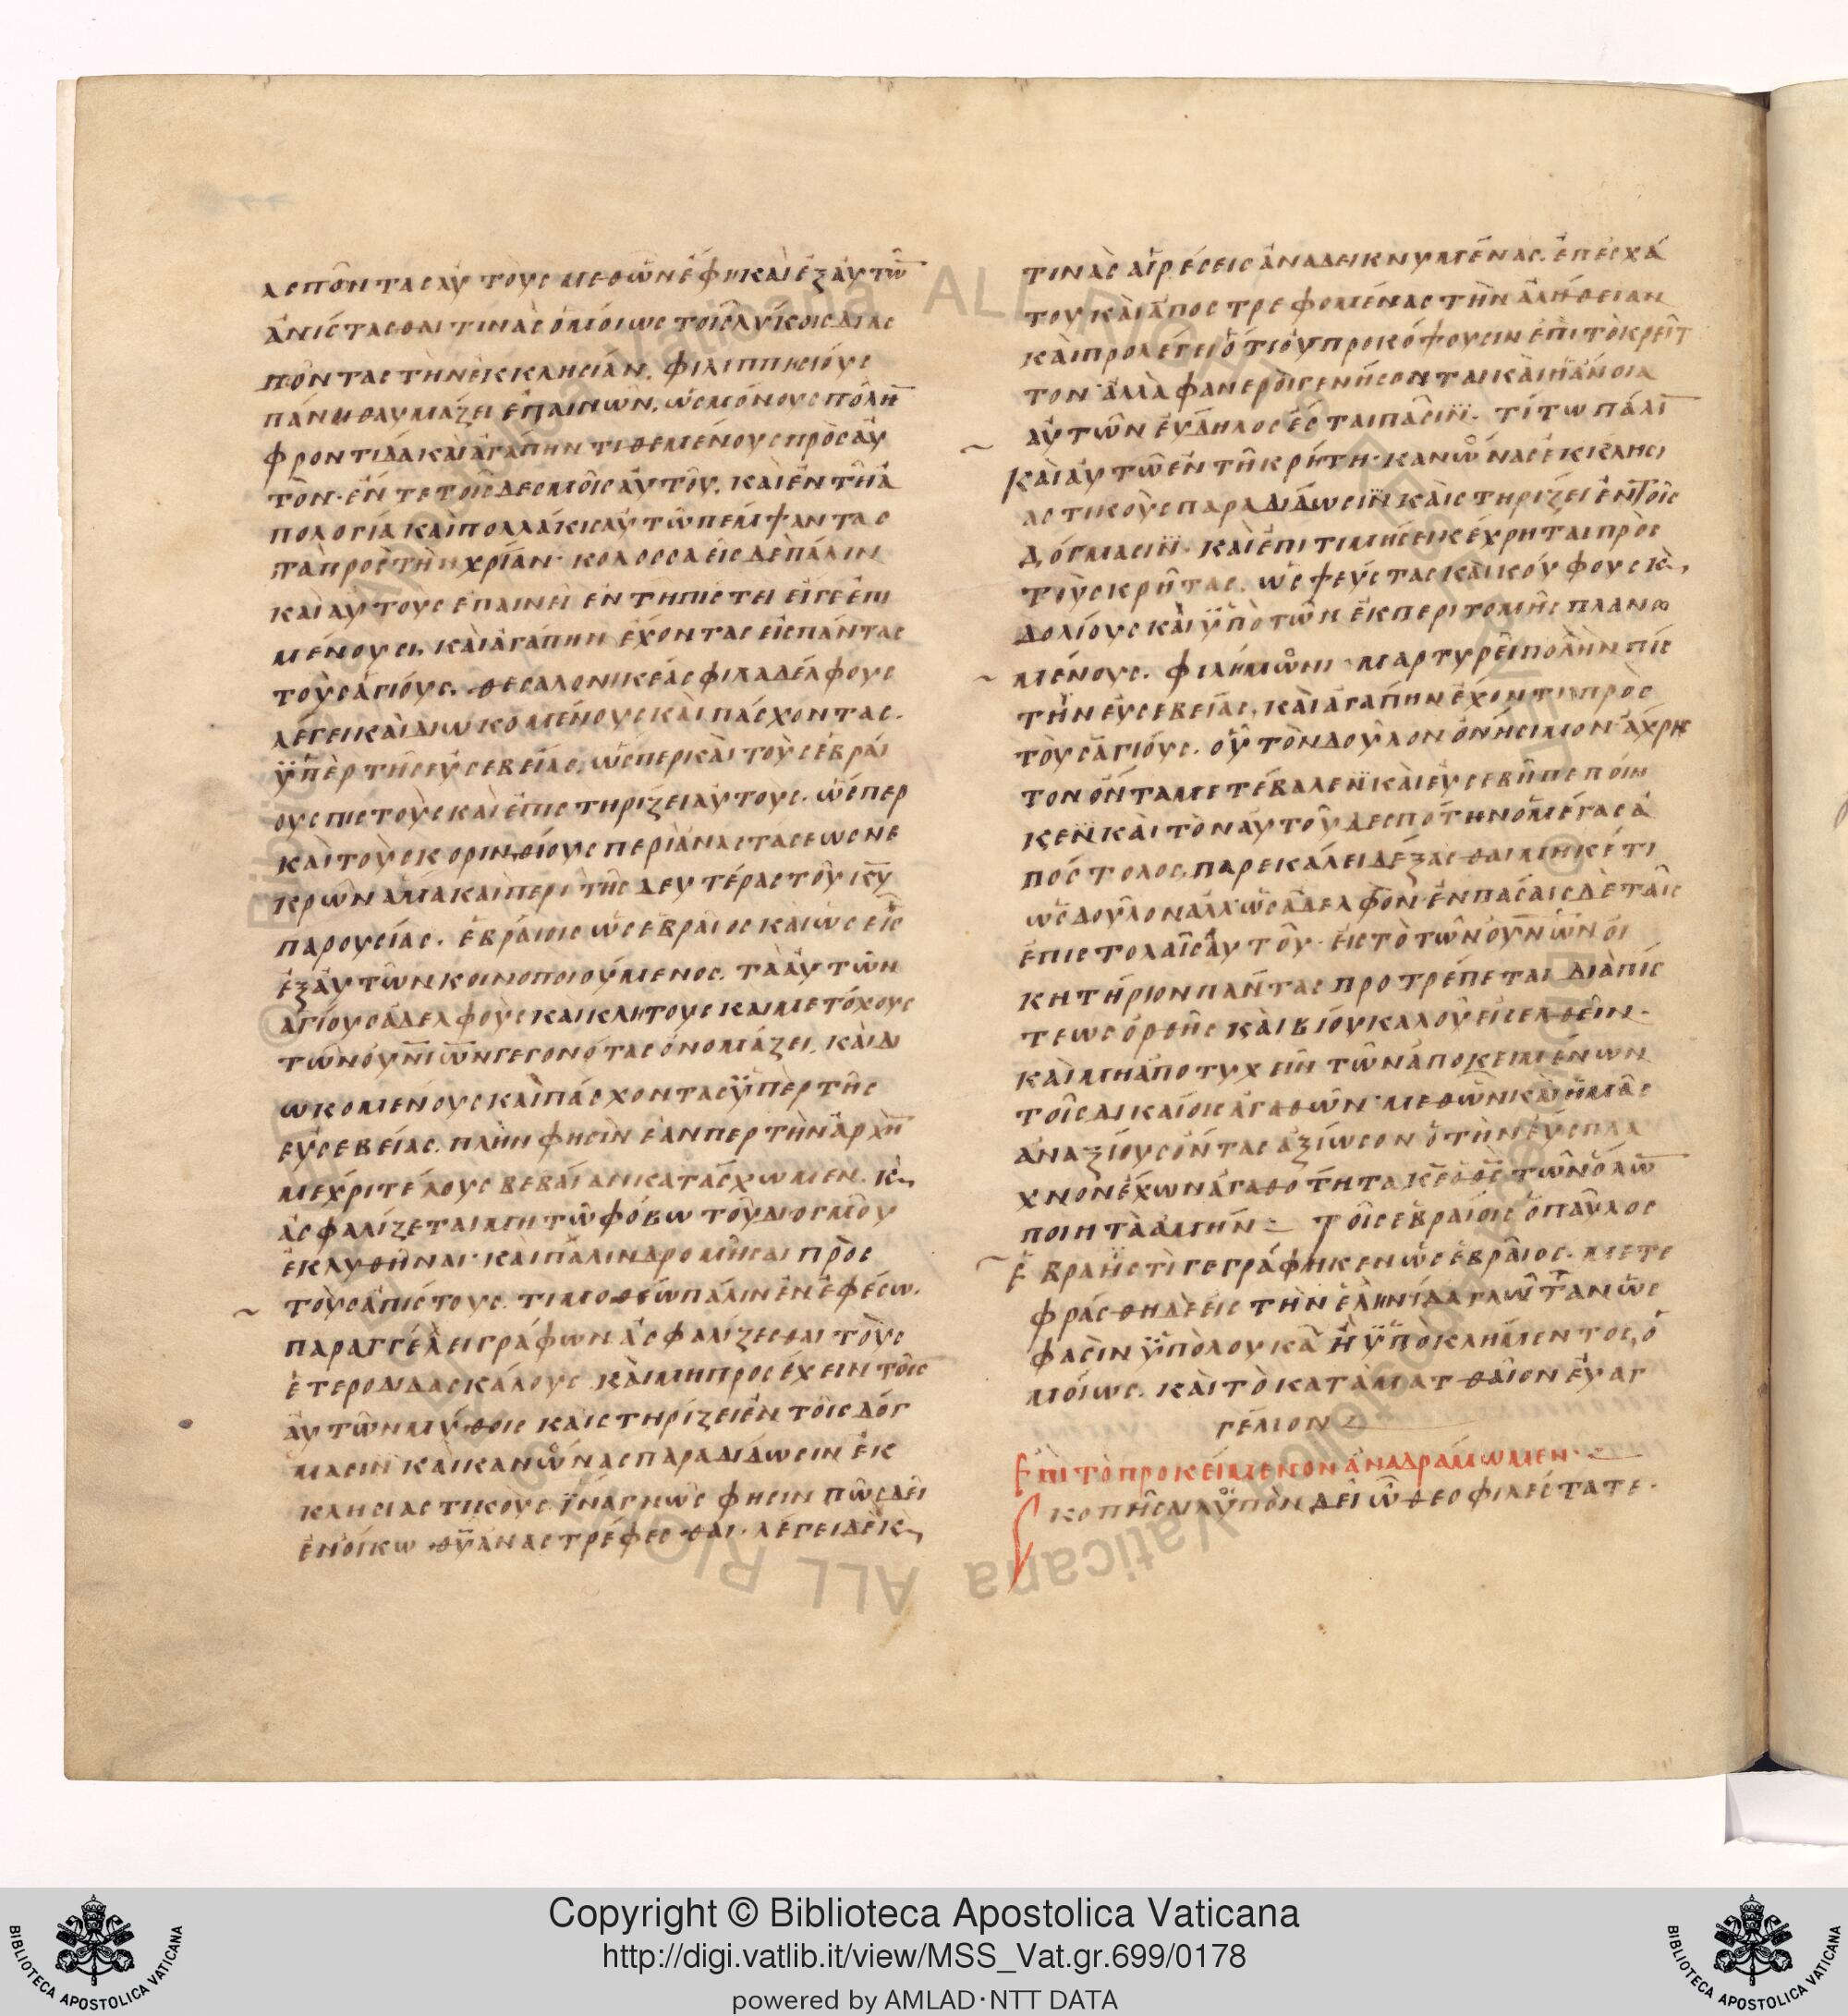 λεποντασ αὐτοὺς μεθ ὧν ἔφη καὶ ἐξ αὐτῶ
ἀνίστασθαι τινὰς ὁμοίως τοῖς λύκοις διασ
πόντας τὴν ἐκκλησίαν. φιλιππησίους
πάνυ θαυμάζει ἐπαινῶν, ὡς μόνους πολὴ
φροντίδα καὶ ἀγάπην τιθεμένους πρὸς αὐ
τὸν· ἔν τε τοῖς δεσμοῖς αὐτοῦ, καὶ ἐν τῇ ἀ
πολογία καὶ πολλάκις αὐτῶ πέμψαντας
τὰ πρὸς τὴν χρίαν· κολοσσαεῖς δὲ πάλιν
καὶ αὐτοὺς ἐπαινεῖ ἐν τῇ πίστει εἴγε ἐπι
μένουσι, καὶ ἀγάπην ἔχοντας εἰς πάντας
τοὺς ἁγίους. θεσαλονικέας φιλαδέλφους
λέγει καὶ διωκομένους καὶ πάσχοντας.
ὑπὲρ τῆς εὐσεβείας, ὥσπερ καὶ τοὺς ἑβραί
ους πιστοὺς καὶ ἐπιστηρίζει αὐτοὺς. ὥσπερ
καὶ τοὺς κορινθίους περὶ ἀναστάσεως νε
κρῶν ἅμα καὶ περὶ τῆς δευτέρας τοῦ κυ
παρουσίας. ἑβραίοις ὡς ἑβραῖος καὶ ὡς εἷς
ἐξ αὐτῶν κοινοποιούμενος. τὰ αὐτῶν
ἁγίους ἀδελφοὺς καὶ κλητοὺς καὶ μετόχους
τῶν οὐνιῶν γεγονότας ὀνομάζει, καὶ δι
ωκομένους καὶ πάσχοντας ὑπὲρ τῆς
εὐσεβείας. πλὴν φησὶν ἐάνπερ τὴν ἀρχὴν
μέχρι τέλους βεβαίαν κατάσχωμεν. κ
ἀσφαλίζεται μὴ τῷ φόβω τοῦ διογμοῦ
ἐκλυθῆναι· καὶ πάλιν δρομῆσαι πρὸς
τοὺς ἀπίστους. τιμοθέω πάλιν ἐν ἐφέσω.
παραγγέλει γράφων ἀσφαλίζεσθαι τοὺς
ἑτεροδιδασκάλους. καὶ μὴ προσέχειν τοῖς
αὐτῶν μύθοις καὶ στηρίζει ἐν τοῖς δόγ
μασιν καὶ κανόνας παραδίδωσιν ἐκ
κλησιαστικοὺς ἵνα γνῷς φησιν πῶς δεῖ
ἐν οἴκω θυ ἀναστρέφεσθαι. λέγει δὲ κ
τινὰς αἱρέσεις ἀναδεικνυμένας. ἐπ ἐσχά
του καὶ ἀποστρεφομένας τὴν ἀλήθειαν
καὶ προλέγει ὅτι οὐ προκόψουσιν ἐπὶ τὸ κρεῖτ
τον· ἀλλὰ φανεροὶ γενήσονται καὶ ἡ ἄνοια
αὐτῶν εὔδηλος ἔσται πᾶσιν. τίτω πάλι
καὶ αὐτῶ ἐν τῇ κρήτη· κανόνας ἐκκλησι
αστικοὺς παραδίδωσιν καὶ στηρίζει ἐν τοῖς
δόγμασιν. καὶ ἐπιτιμήσει κέχρηται πρὸς
τοὺς κρῆτας. ὡς ψεύστας καὶ κούφους κ
δολίους καὶ ὑπὸ τῶν ἐκ περιτομῆς πλανο
μένους. φιλήμωνι μαρτυρεῖ πολὴν πίσ
τὴν εὐσεβείας, καὶ ἀγάπην ἔχοντι πρὸς
τοὺς ἁγίους. οὗ τὸν δοῦλον ὀνήσιμον ἄχρη
τον ὄντα μετέβαλεν καὶ εὐσεβῆ πεποίη
κεν καὶ τὸν αὐτοῦ δεσπότην ὁ μέγας ἀ
πόστολος, παρεκάλει δέξασθαι μηκέτι
ὡς δοῦλον ἀλλ ὡς ἀδελφόν· ἐν πάσαις δὲ ταῖς
ἐπιστολαῖς αὐτοῦ· εἰς τὸ τῶν οὐνῶν οἰ
κητήριον πάντας προτρέπεται διὰ πίσ
τεως ὀρθῆς καὶ βίου καλοῦ εἰσελθεῖν.
καὶ μὴ ἀποτυχεῖν τῶν ἀποκειμένων
τοῖς δικαίοις ἀγαθῶν· μεθ ὧν καὶ ἡμᾶς
ἀναξίους ὄντας ἀξίωσον ὁ τὴν εὐσπλα
χνον ἔχων ἀγαθότητα κε ὁ θς τῶν ὅλω
ποιητὰ ἀμήν: τοῖς ἑβραίοις ὁ παῦλος
ἑβραϊστὶ γεγράφηκεν ὡς ἑβραῖος. μετε
φράσθη δὲ εἰς τὴν ἑληνίδα γλῶτταν ὥς
φασιν ὑπὸ λουκᾶ ἢ ὑπὸ κλήμεντος, ὁ
μοίως. καὶ τὸ κατὰ ματθαῖον εὐαγ
γέλιον
Ἐπὶ τὸ προκείμενον ἀναδράμωμεν·
σκοπῆσαι λοιπὸν δεῖ ὦ θεοφιλέστατε.
Copyright © Biblioteca Apostolica Vaticana
http://digi.vatlib.it/view/MSS_Vat.gr.699/0178
powered by AMLAD·NTT DATA
BIBLIOTECA APOSTOLICA VATICANA
BIBLIOTECA APOSTOLICA VATICANA